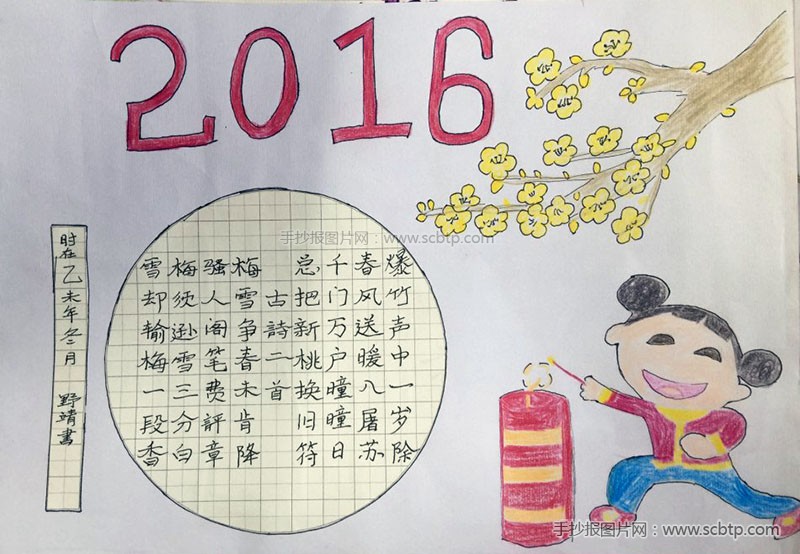 2016
手抄报图片网：www.scbtp.com
爆竹声中一岁除
春风送暖入屠苏
千门万户瞳瞳日
总把新桃换旧符
古詩二首
梅雪争春未肯降
骚人阁笔费評章
梅须逊雪三分白
雪却输梅一段香
时在乙未年冬月 野靖書
手抄报图片网：www.scbtp.com